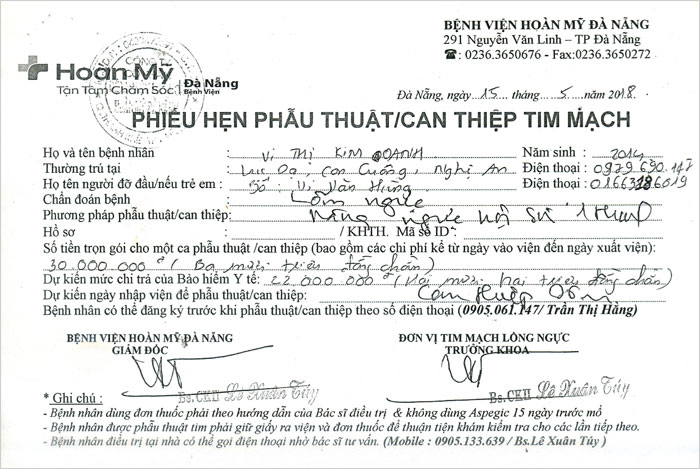 BỆNH VIỆN HOÀN MỸ ĐÀ NẴNG
291 Nguyễn Văn Linh – TP Đà Nẵng
☎: 0236.3650676 - Fax:0236.3650272
Hoàn Mỹ Đà Nẵng
Bệnh Viện
Tận Tâm Chăm Sóc
Đà Nẵng, ngày 15 tháng 5 năm 2018
PHIẾU HẸN PHẪU THUẬT/CAN THIỆP TIM MẠCH
Họ và tên bệnh nhân : Vi THỊ KIM OANH Năm sinh : 2014
Thường trú tại : Lục Dạ, Con Cuông, Nghệ An Điện thoại : 0979690.147
Họ tên người đỡ đầu/nếu trẻ em : Bố: Vi Văn Hùng Điện thoại : 01663186019
Chẩn đoán bệnh : Lõm ngực
Phương pháp phẫu thuật/can thiệp: Nâng ngực nội soi 1 thanh
Hồ sơ : / KHTH. Mã số ID:
Số tiền trọn gói cho một ca phẫu thuật /can thiệp (bao gồm các chi phí kể từ ngày vào viện đến ngày xuất viện):
30.000.000đ (Ba mươi triệu đồng chẵn)
Dự kiến mức chi trả của Bảo hiểm Y tế: 22.000.000đ (Hai mươi hai triệu đồng chẵn)
Dự kiến ngày nhập viện để phẫu thuật/can thiệp:
Bệnh nhân có thể đăng ký trước khi phẫu thuật/can thiệp theo số điện thoại (0905.061.147/ Trần Thị Hằng)
BỆNH VIỆN HOÀN MỸ ĐÀ NẴNG
GIÁM ĐỐC
ĐƠN VỊ TIM MẠCH LỒNG NGỰC
TRƯỞNG KHOA
Bs.CKII Lê Xuân Túy
Bs.CKII Lê Xuân Túy
* Ghi chú :
- Bệnh nhân dùng đơn thuốc phải theo hướng dẫn của Bác sĩ điều trị & không dùng Aspegic 15 ngày trước mổ
- Bệnh nhân được phẫu thuật tim phải giữ giấy ra viện và đơn thuốc để thuận tiện khám kiểm tra cho các lần tiếp theo.
- Bệnh nhân điều trị tại nhà có thể gọi điện thoại nhờ bác sĩ tư vấn. (Mobile : 0905.133.639 / Bs.Lê Xuân Túy )